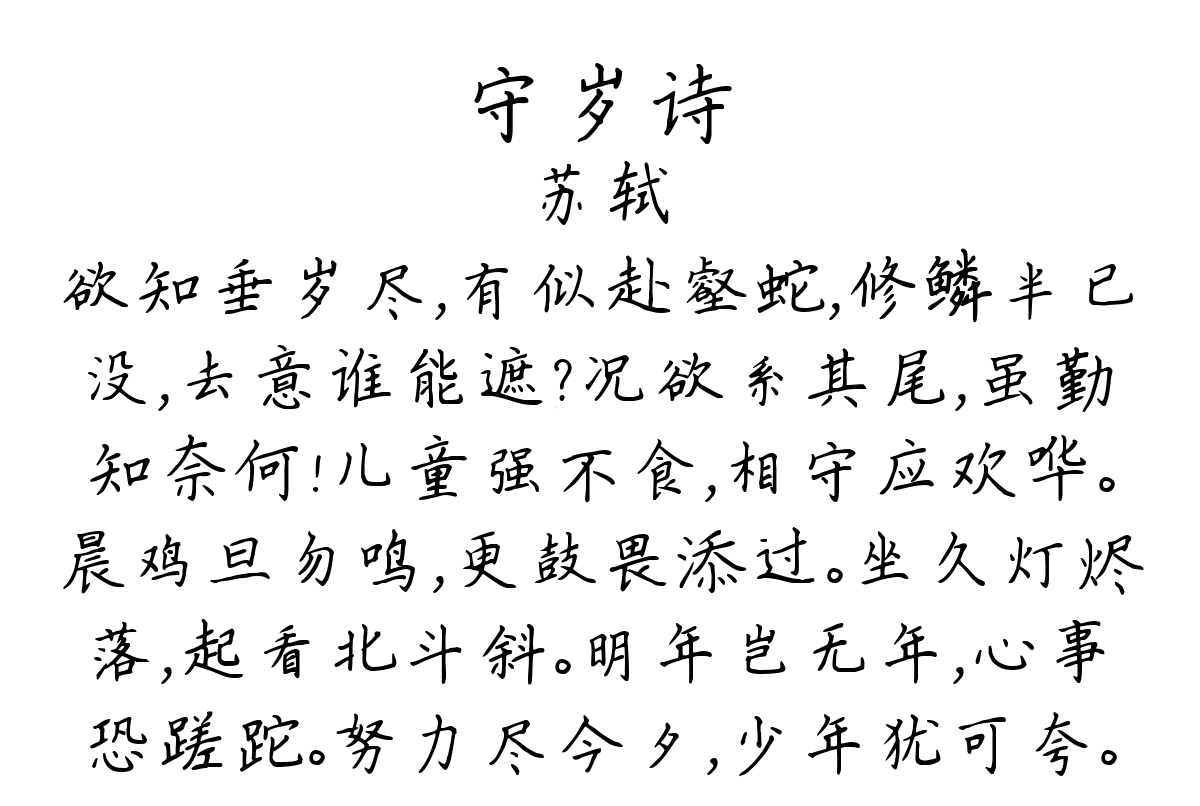 守岁诗
苏轼
欲知垂岁尽,有似赴壑蛇,修鳞半已
没,去意谁能遮?况欲系其尾,虽勤
知奈何!儿童强不食,相守应欢哗。
晨鸡旦勿鸣,更鼓畏添过。坐久灯烬
落,起看北斗斜。明年岂无年,心事
恐蹉跎。努力尽今夕,少年犹可夸。